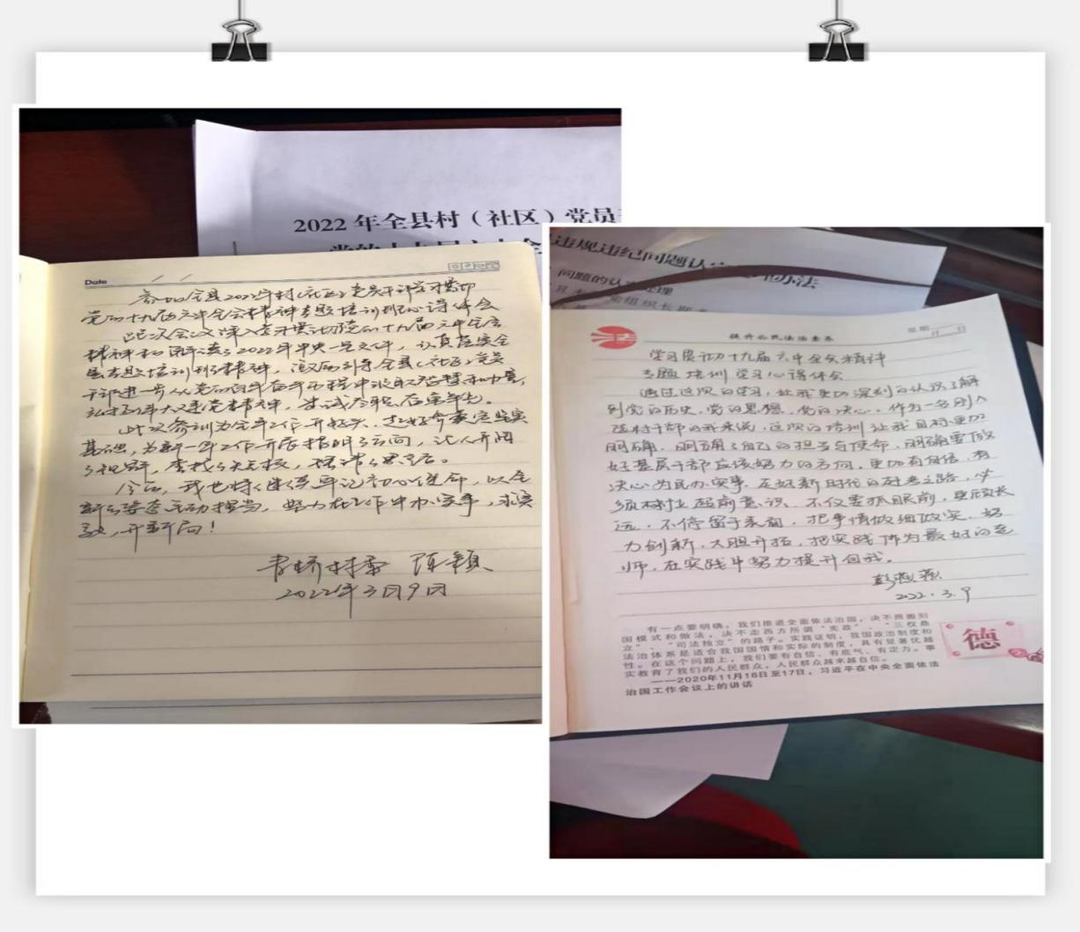 2022年全县村（社区）党员
Date
参加全县2022年村（社区）党员干部学习贯彻
党的十九届六中全会精神专题培训班心得体会
此次会议深入学习贯彻党的十九届六中全会
精神和解读了2022年中央一号文件，认真落实全
县专题培训班精神，
弘扬伟大建党精神，
此次培训为全年工作开好头、
基础，为新一年工作开展指明了方向，让人开阔
了视野，
今后，我也将继续牢记初心使命，以全
新的姿态主动担当，努力在工作中办实事，求实
效，开新局！
青桥村委 陈颖
2022年3月9日
违规违纪问题认 办法
问题的认 处理
提升公民法治素养
星期
月 日
学习贯彻十九届六中全会精神
专题培训学习心得体会
通过这次的学习，让我更加深刻的认识了解
到党的历史，党的思想，党的决心。作为一名刚入
选村干部的我来说，这次的培训让我目标更加
明确，明确了自己的担当与使命，明确要做
好基层干部应该努力的方向，更加有自信，有
决心为民办实事。在好新时代的赶考之路，必
须树立超前意识，不仅要抓眼前，更应谋长
远，不停留于表面，把事情做细做实，努
力创新，大胆开拓，把实践作为最好的老
师，在实践中努力提升自我。
彭燕燕
2022.3.9
有一点要明确，我们推进全面依法治国，决不照搬别
国模式和做法，决不走西方所谓“宪政”、“三权鼎
立”、“司法独立”的路子。实践证明，我国政治制度和
法治体系是适合我国国情和实际的制度，具有显著优越
性。在这个问题上，我们要有自信、有底气、有定力。事
实教育了我们的人民群众，人民群众越来越自信。
——2020年11月16日至17日，习近平在中央全面依法
治国工作会议上的讲话
德